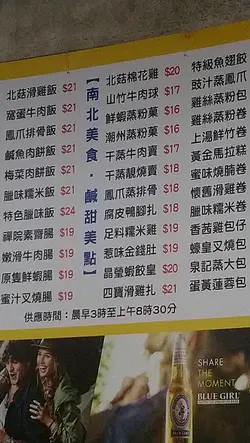 北菇滑雞飯 $21
窩蛋牛肉飯 $21
鳳爪排骨飯 $21
鹹魚肉餅飯 $21
梅菜肉餅飯 $21
臘味糯米飯 $21
特色臘味飯 $24
禪院素齋腸 $19
嫩滑牛肉腸 $19
原隻鮮蝦腸 $19
蜜汁叉燒腸 $19
【南北美食·鹹甜美點】
北菇棉花雞 $20
山竹牛肉球 $17
鮮蝦蒸粉菓 $16
潮州蒸粉菓 $16
干蒸牛肉賣 $17
干蒸靚燒賣 $18
鳳爪蒸排骨 $18
腐皮鴨腳扎 $18
足料糯米雞 $19
惹味金錢肚 $19
晶瑩蝦餃皇 $20
四寶滑雞扎 $21
特級魚翅餃
豉汁蒸鳳爪
雞絲蒸粉包
雞絲蒸粉卷
上湯鮮竹卷
黃金馬拉糕
蜜味燒腩卷
懷舊滑雞卷
臘味糯米卷
香茜雞包仔
蠔皇叉燒包
泉記蒸大包
蛋黃蓮蓉包
供應時間：晨早3時至上午8時30分
SHARE
THE
MOMENT
BLUE GIRL